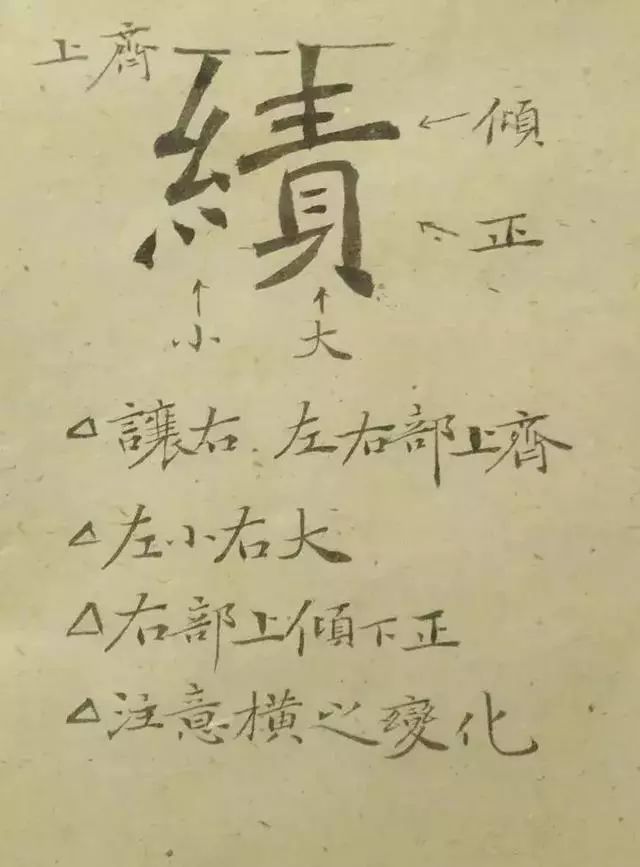 上齊
績
←傾
↖正
↑小
↑大
△讓右.左右部上齊
△左小右大
△右部上傾下正
△注意橫之變化